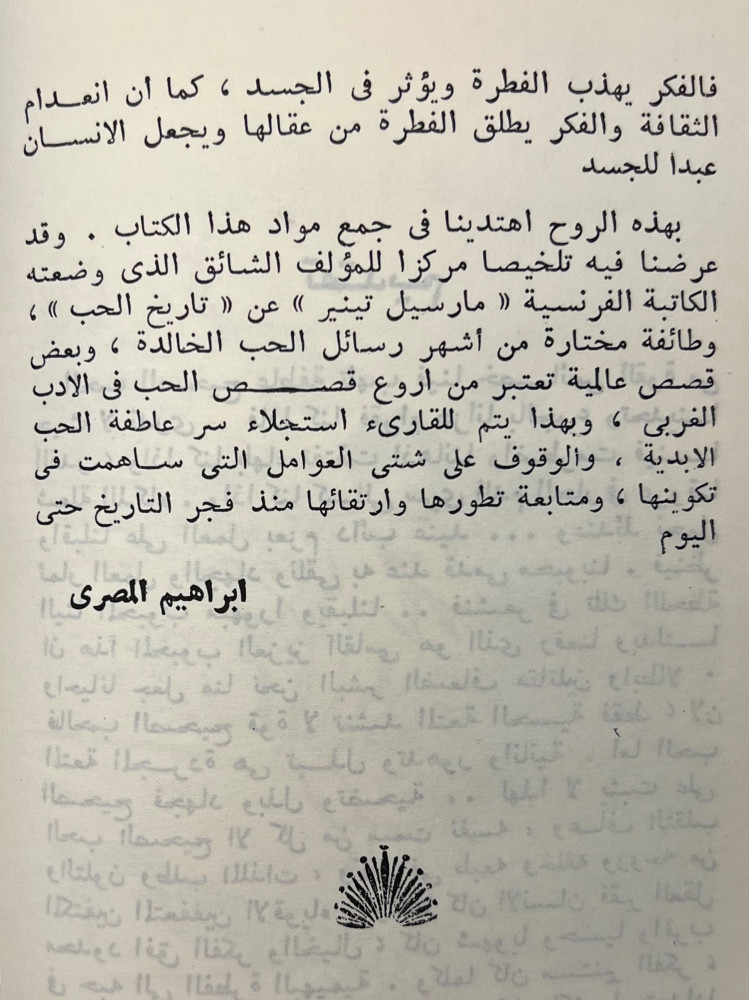 فالفكر يهذب الفطرة ويؤثر فى الجسد ، كما أن انعـدام
الثقافة والفكر يطلق الفطرة من عقالها ويجعل الانســان
عبدا للجسد
بهذه الروح اهتدينا فى جمع مواد هذا الكتاب . وقد
عرضنا فيه تلخيصا مركزا للمؤلف الشائق الذى وضعته
الكاتبة الفرنسية « مارسيل تينير » عن « تاريخ الحب » ،
وطائفة مختارة من أشهر رسائل الحب الخالدة ، وبعض
قصص عالمية تعتبر من اروع قصــص الحب فى الادب
الغربى ، وبهذا يتم للقارىء استجلاء سر عاطفة الحب
الابدية ، والوقوف على شتى العوامل التى ساهمت فى
تكوينها ، ومتابعة تطورها وارتقائها منذ فجر التاريخ حتى
اليوم
ابراهيم المصرى